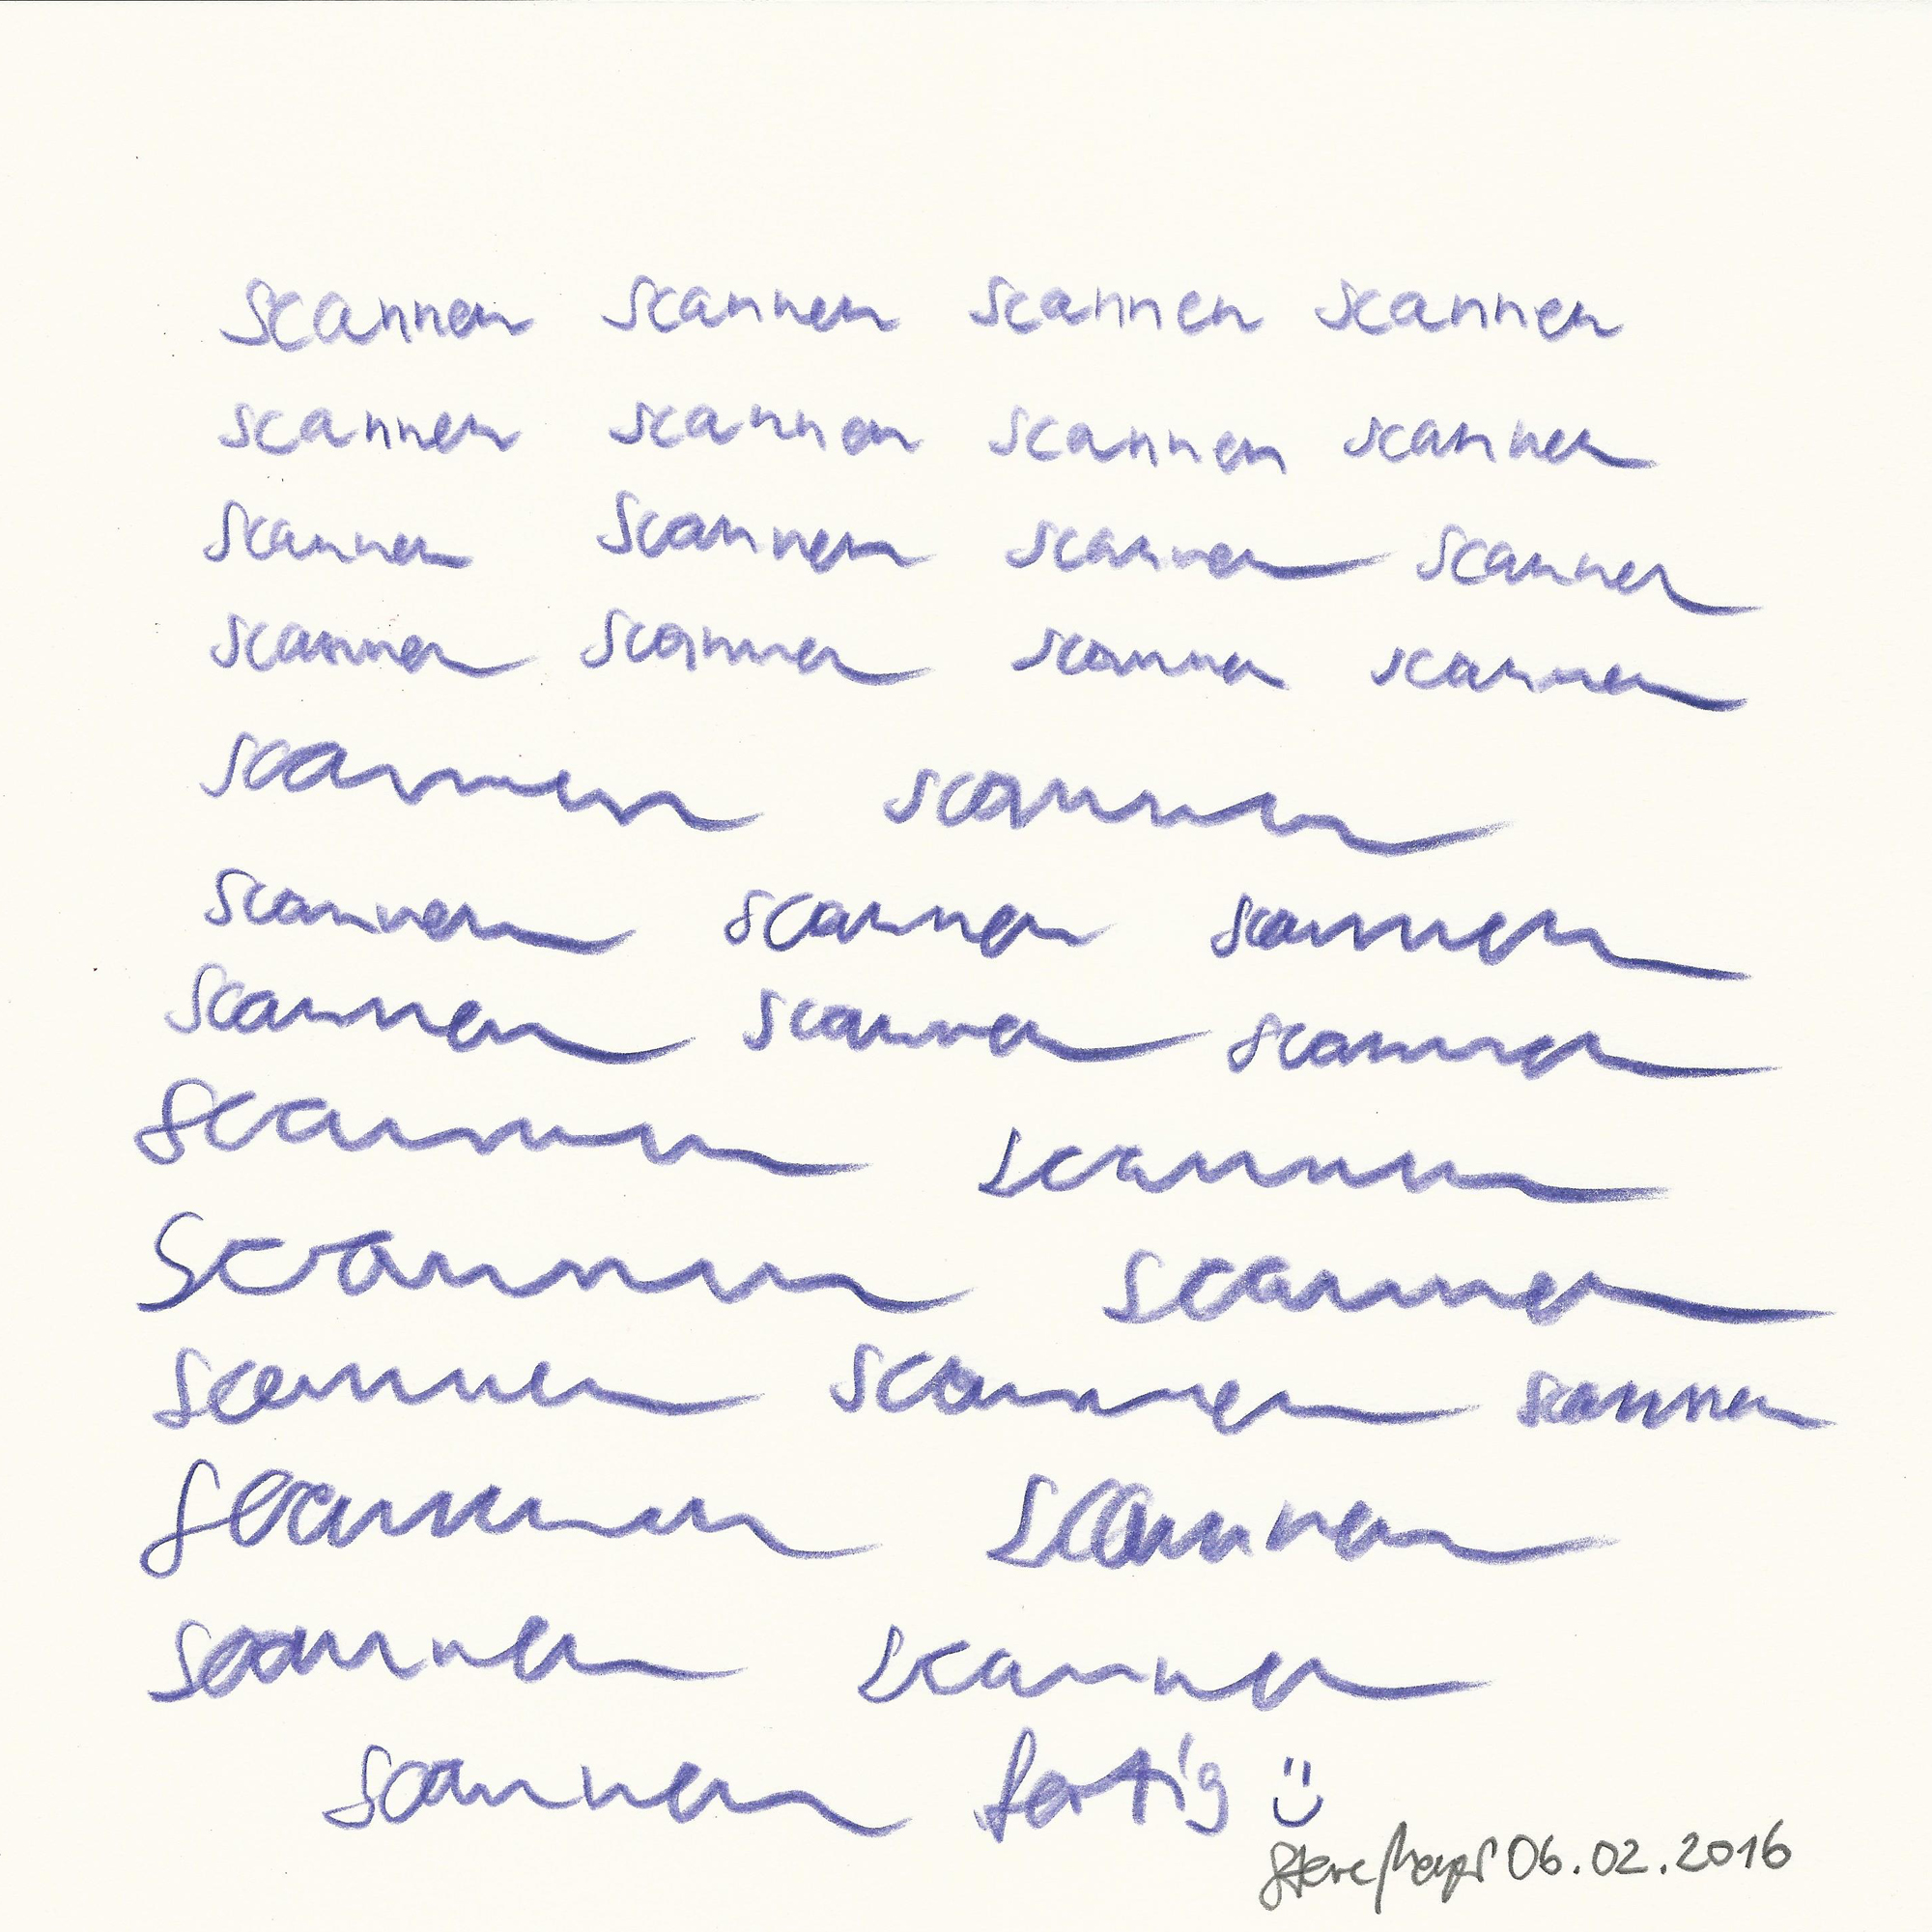 scannen scannen scannen scannen
scannen scannen scannen scannen
scannen scannen scannen scannen
scannen scannen scannen scannen
scannen scannen
scannen scannen scannen
scannen scannen scannen
scannen scannen
scannen scannen
scannen scannen scannen
scannen scannen
scannen scannen
scannen fertig :)
06.02.2016